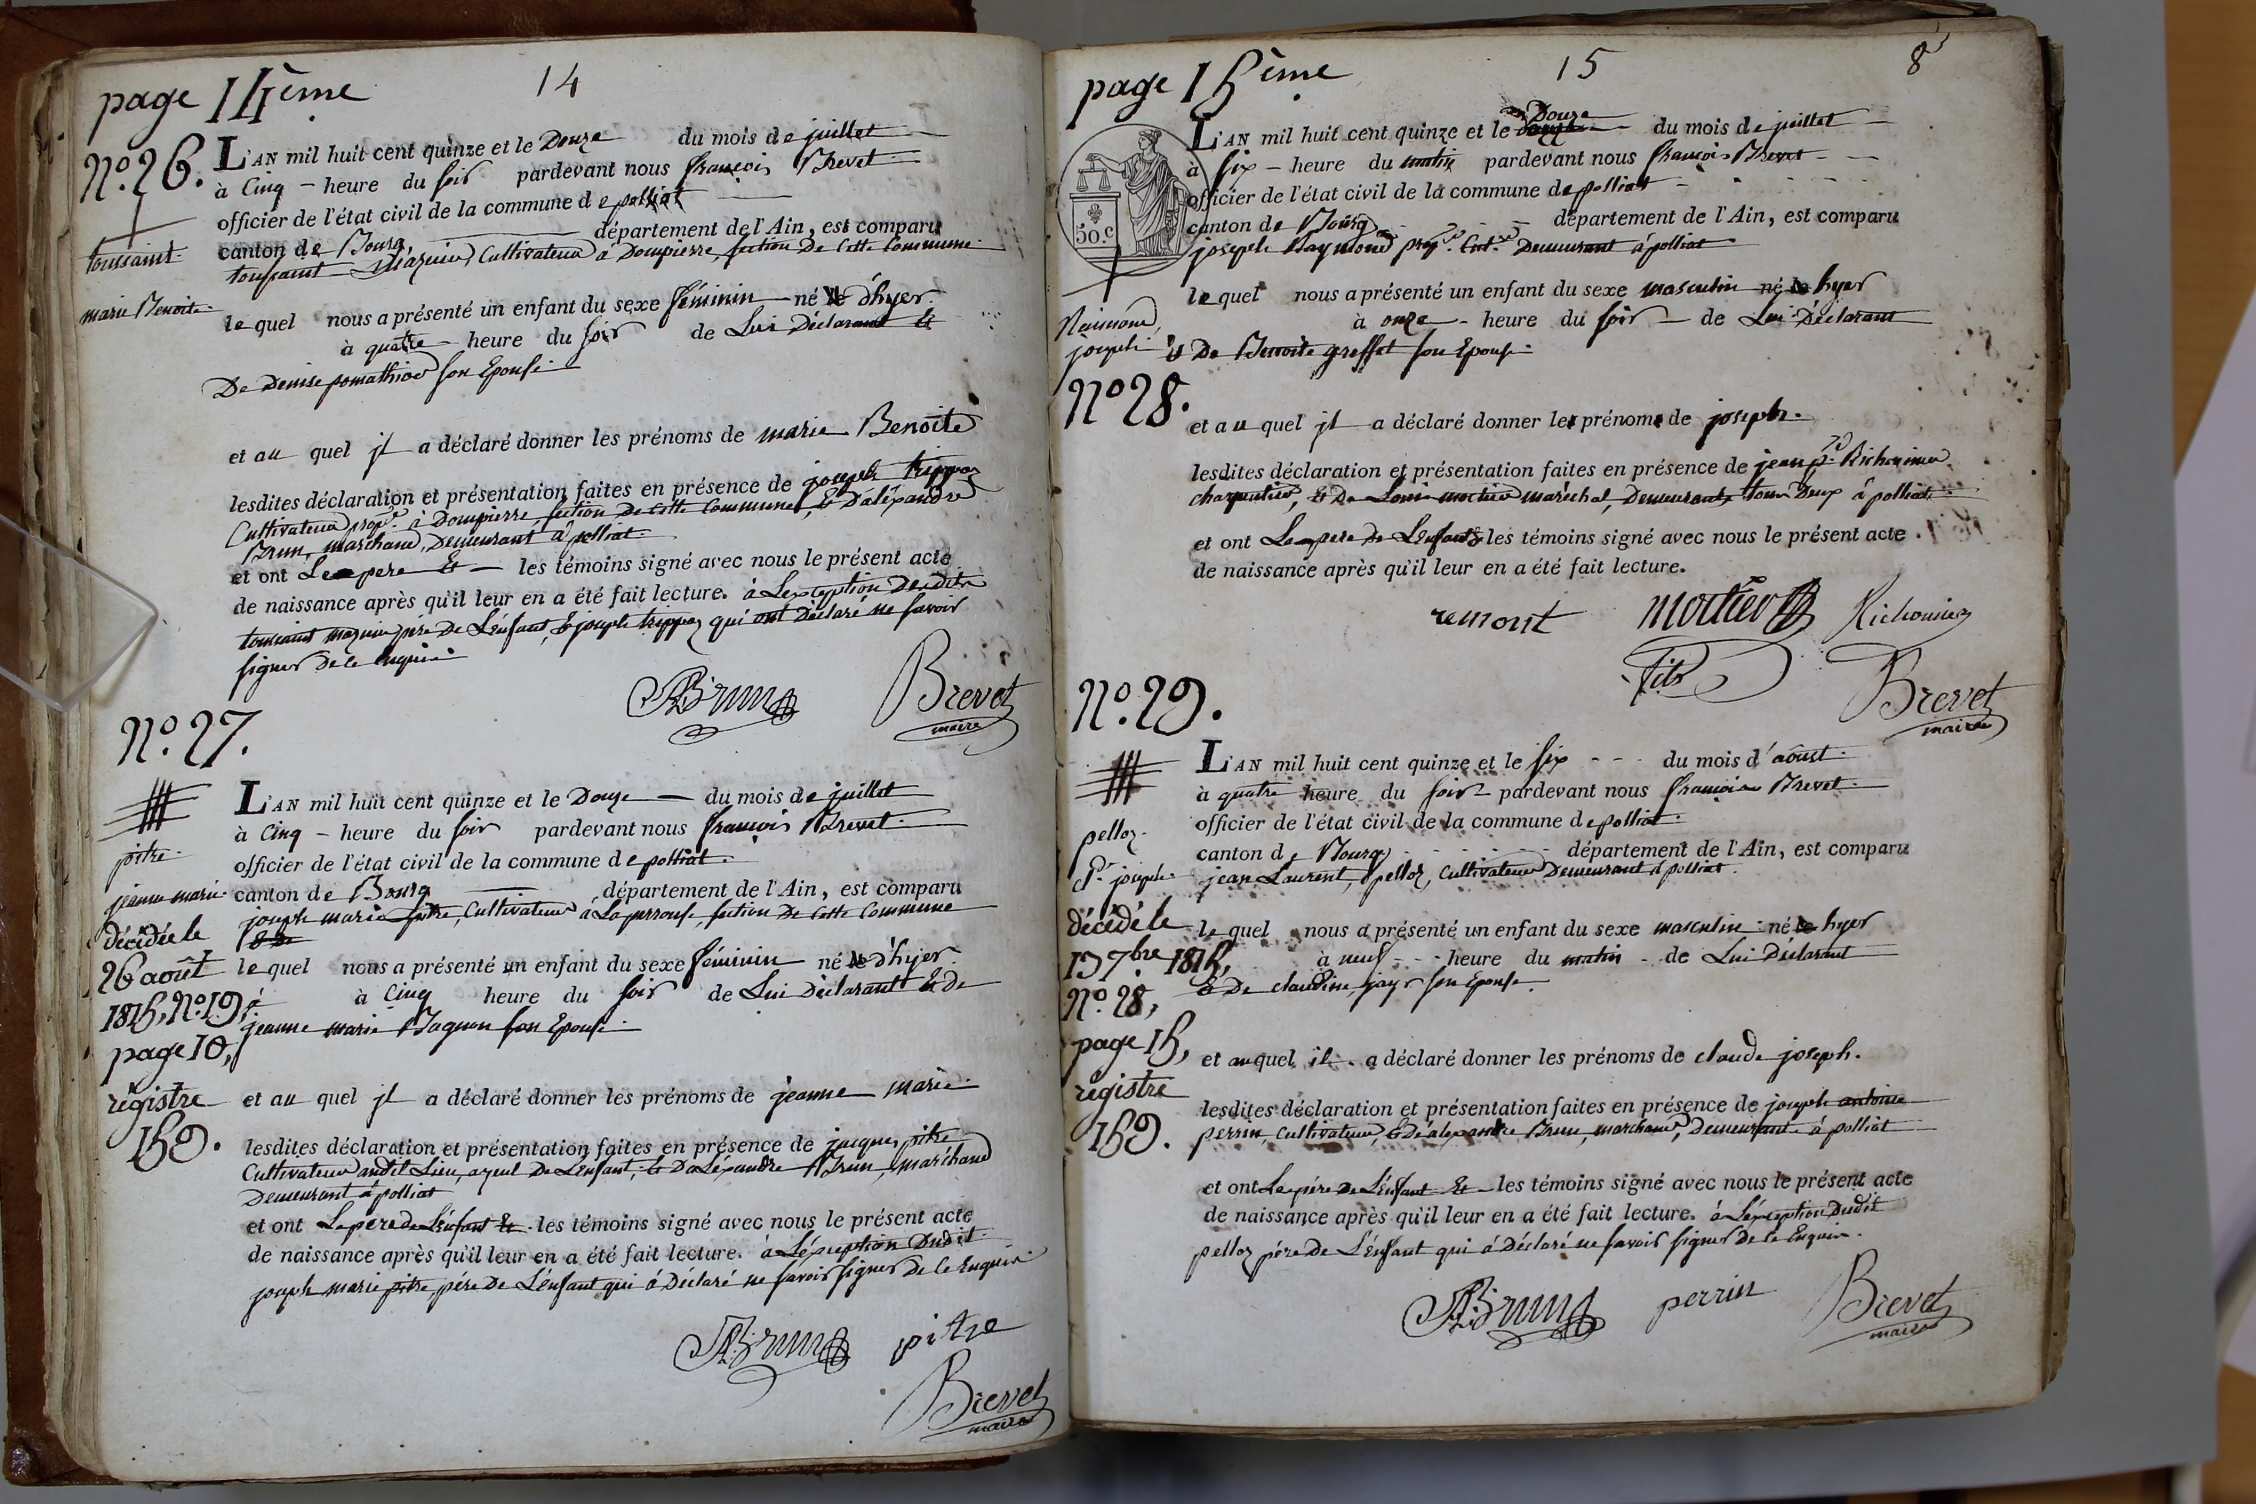 page 14ème
14
N.º 26.
toussaint
marie Benoite
L'AN mil huit cent quinze et le Douze du mois de juillet
à Cinq heure du soir pardevant nous françois Brevet
officier de l'état civil de la commune de polliat
canton de Bourg, département de l'Ain, est comparu
toussaint Cultivateur à Dompierre section De Cette Commune
le quel nous a présenté un enfant du sexe féminin né le d'hyer
à quatre heure du soir de Lui Déclarant Et
De Denise pomathiod son Epouse
et au quel jl a déclaré donner les prénoms de marie Benoite
lesdites déclaration et présentation faites en présence de joseph trippoz
Cultivateur prop.re à Dompierre, section De Cette Commune, & D'aléxandre
Brun, marchand, Demeurant à polliat
et ont Le pere Et les témoins signé avec nous le présent acte
de naissance après qu'il leur en a été fait lecture. à L'exception Desdits
toussaint pere De L'enfant, & joseph trippoz qui ont Déclaré ne savoir
signer De ce Enquis
ABrun
Brevet
maire
N.º 27.
pitre
jeanne marie
décédée le
26 août
1815, N.º 19,
page 10,
régistre
159.
L'AN mil huit cent quinze et le Douze du mois de juillet
à Cinq heure du soir pardevant nous françois Brevet
officier de l'état civil de la commune de polliat
canton de Bourg département de l'Ain, est comparu
joseph marie pitre, Cultivateur à Laperrouse, section De Cette Commune
& De
le quel nous a présenté un enfant du sexe féminin né le d'hyer
à Cinq heure du soir de Lui Déclarant & De
jeanne marie son Epouse
et au quel jl a déclaré donner les prénoms de jeanne marie
lesdites déclaration et présentation faites en présence de jacques pitre
Cultivateur audit Lieu, ayeul De L'enfant, & D'aléxandre Brun, marchand
Demeurant à polliat
et ont Le pere de L'enfant Et les témoins signé avec nous le présent acte
de naissance après qu'il leur en a été fait lecture. à L'éxception Dudit
joseph marie pitre, pére De L'enfant qui a Déclaré ne savoir signer de Ce Enquis
ABrun pitre
Brevet
maire
page 15ème
15
8
50.c
Raimond,
joseph
N.º 28.
Douze
L'AN mil huit cent quinze et le du mois de juillet
à six heure du matin pardevant nous françois Brevet
officier de l'état civil de la commune de polliat
canton de Bourg département de l'Ain, est comparu
joseph Raymond prop.re Cult.r Demeurant à polliat
le quel nous a présenté un enfant du sexe masculin né le hyer
à onze heure du soir de Lui Déclarant
& De Benoite greffet son Epouse
et au quel jl a déclaré donner les prénoms de joseph.
lesdites déclaration et présentation faites en présence de jean Richonnier
charpentier, & De Louis mortier maréchal, Demeurants tous Deux à polliat
et ont Le pere De L'enfant & les témoins signé avec nous le présent acte
de naissance après qu'il leur en a été fait lecture.
remont mortier Richonnier
fils
Brevet
maire
N.º 29.
pelloz
C.de joseph
décédé le
1815,
N.º 28,
page 15,
régistre
159.
L'AN mil huit cent quinze et le six du mois d'aoust
à quatre heure du soir pardevant nous françois Brevet
officier de l'état civil de la commune de polliat
canton de Bourg département de l'Ain, est comparu
jean Laurent, pelloz, Cultivateur Demeurant à polliat
le quel nous a présenté un enfant du sexe masculin né le hyer
à neuf heure du matin de Lui Déclarant
& De claudine jayr son Epouse
et au quel il a déclaré donner les prénoms de claude joseph.
lesdites déclaration et présentation faites en présence de joseph antoine
perrin, Cultivateur, & D'aléxandre Brun, marchand, Demeurant à polliat
et ont Le pére de L'énfant Et les témoins signé avec nous le présent acte
de naissance après qu'il leur en a été fait lecture. à L'éxception Dudit
pelloz pére De L'énfant qui à Déclaré ne savoir signer De Ce Enquis.
ABrun perrin Brevet
maire